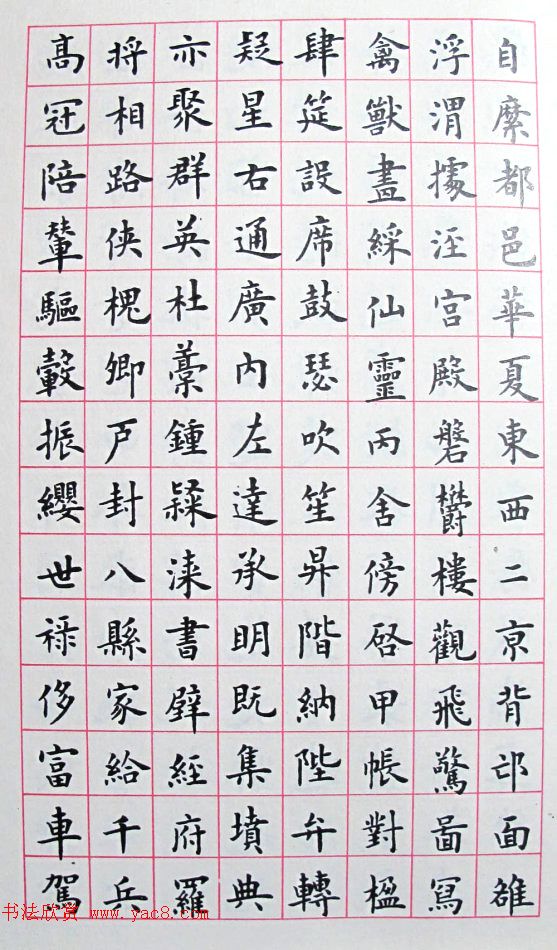 自縻都邑華夏東西二京背邙面雒
浮渭據涇宮殿磐欝樓觀飛驚啚寫
禽獸畫綵仙靈丙舍傍啓甲帳對楹
肆筵設席鼓瑟吹笙昇階納陛弁轉
疑星右通廣內左達承明既集墳典
亦聚群英杜藁鍾隸漆書壁經府羅
将相路俠槐卿戶封八縣家給千兵
髙冠陪輦驅轂振纓世禄侈富車駕
书法欣赏 www.yac8.com